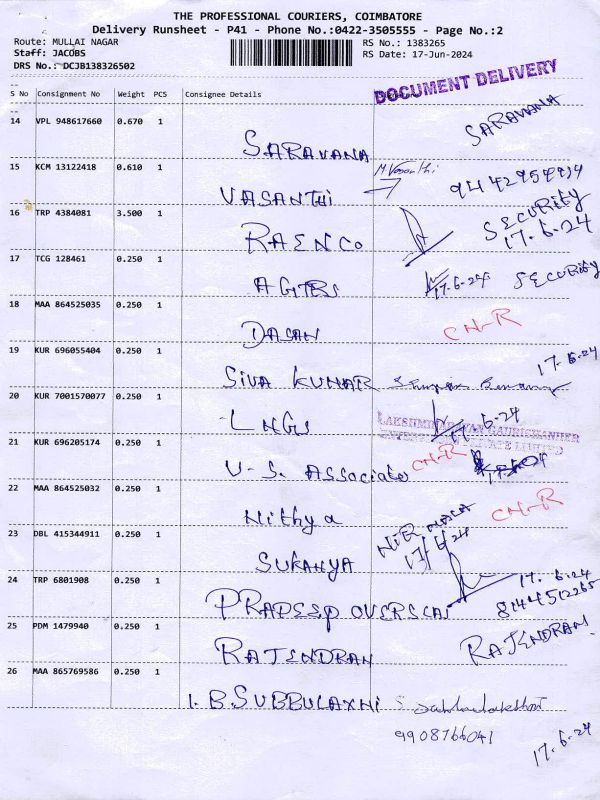 THE PROFESSIONAL COURIERS, COIMBATORE
Delivery Runsheet - P41 - Phone No.:0422-3505555 - Page No.:2
Route: MULLAI NAGAR
Staff: JACOBS
DRS No.: DCJB138326502
RS No.: 1383265
RS Date: 17-Jun-2024
DOCUMENT DELIVERY
S No Consignment No Weight PCS Consignee Details
14 VPL 948617660 0.670 1 SARAVANA SARAVANA
15 KCM 13122418 0.610 1 VASANTHI M Vasanthi
16 TRP 4384081 3.500 1 RAENCO SECURITY 17.6.24
17 TCG 128461 0.250 1 17.6.24 SECURITY
18 MAA 864525035 0.250 1 DASAN CN-R
19 KUR 696055404 0.250 1 SIVA KUNAR 17.6.24
20 KUR 7001570077 0.250 1 LNGS 17.6.24
21 KUR 696205174 0.250 1 U-S. ASSociate CN-R
22 MAA 864525032 0.250 1 Nithya CN-R
23 DBL 415344911 0.250 1 SUKANYA
24 TRP 6801908 0.250 1 PRADEEP OVERSEAS 17.6.24 8144512265
25 PDM 1479940 0.250 1 RAJENDRAN RAJENDRAN
26 MAA 865769586 0.250 1 1.B.SUBBULAXNI
9908766041
17.6.24